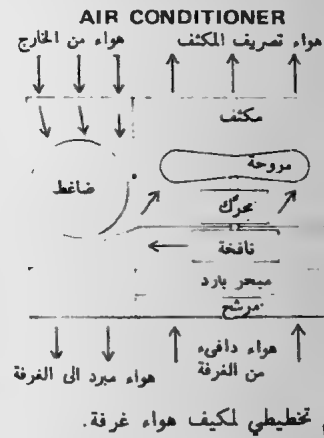 AIR CONDITIONER
هواء من الخارج
هواء تصريف المكثف
مكثف
ضاغط
مروحة
محرّك
نافخة
مبخر بارد
مرشح
هواء دافىء
من الغرفة
هواء مبرد الى الغرفة
تخطيطي لمكيف هواء غرفة.